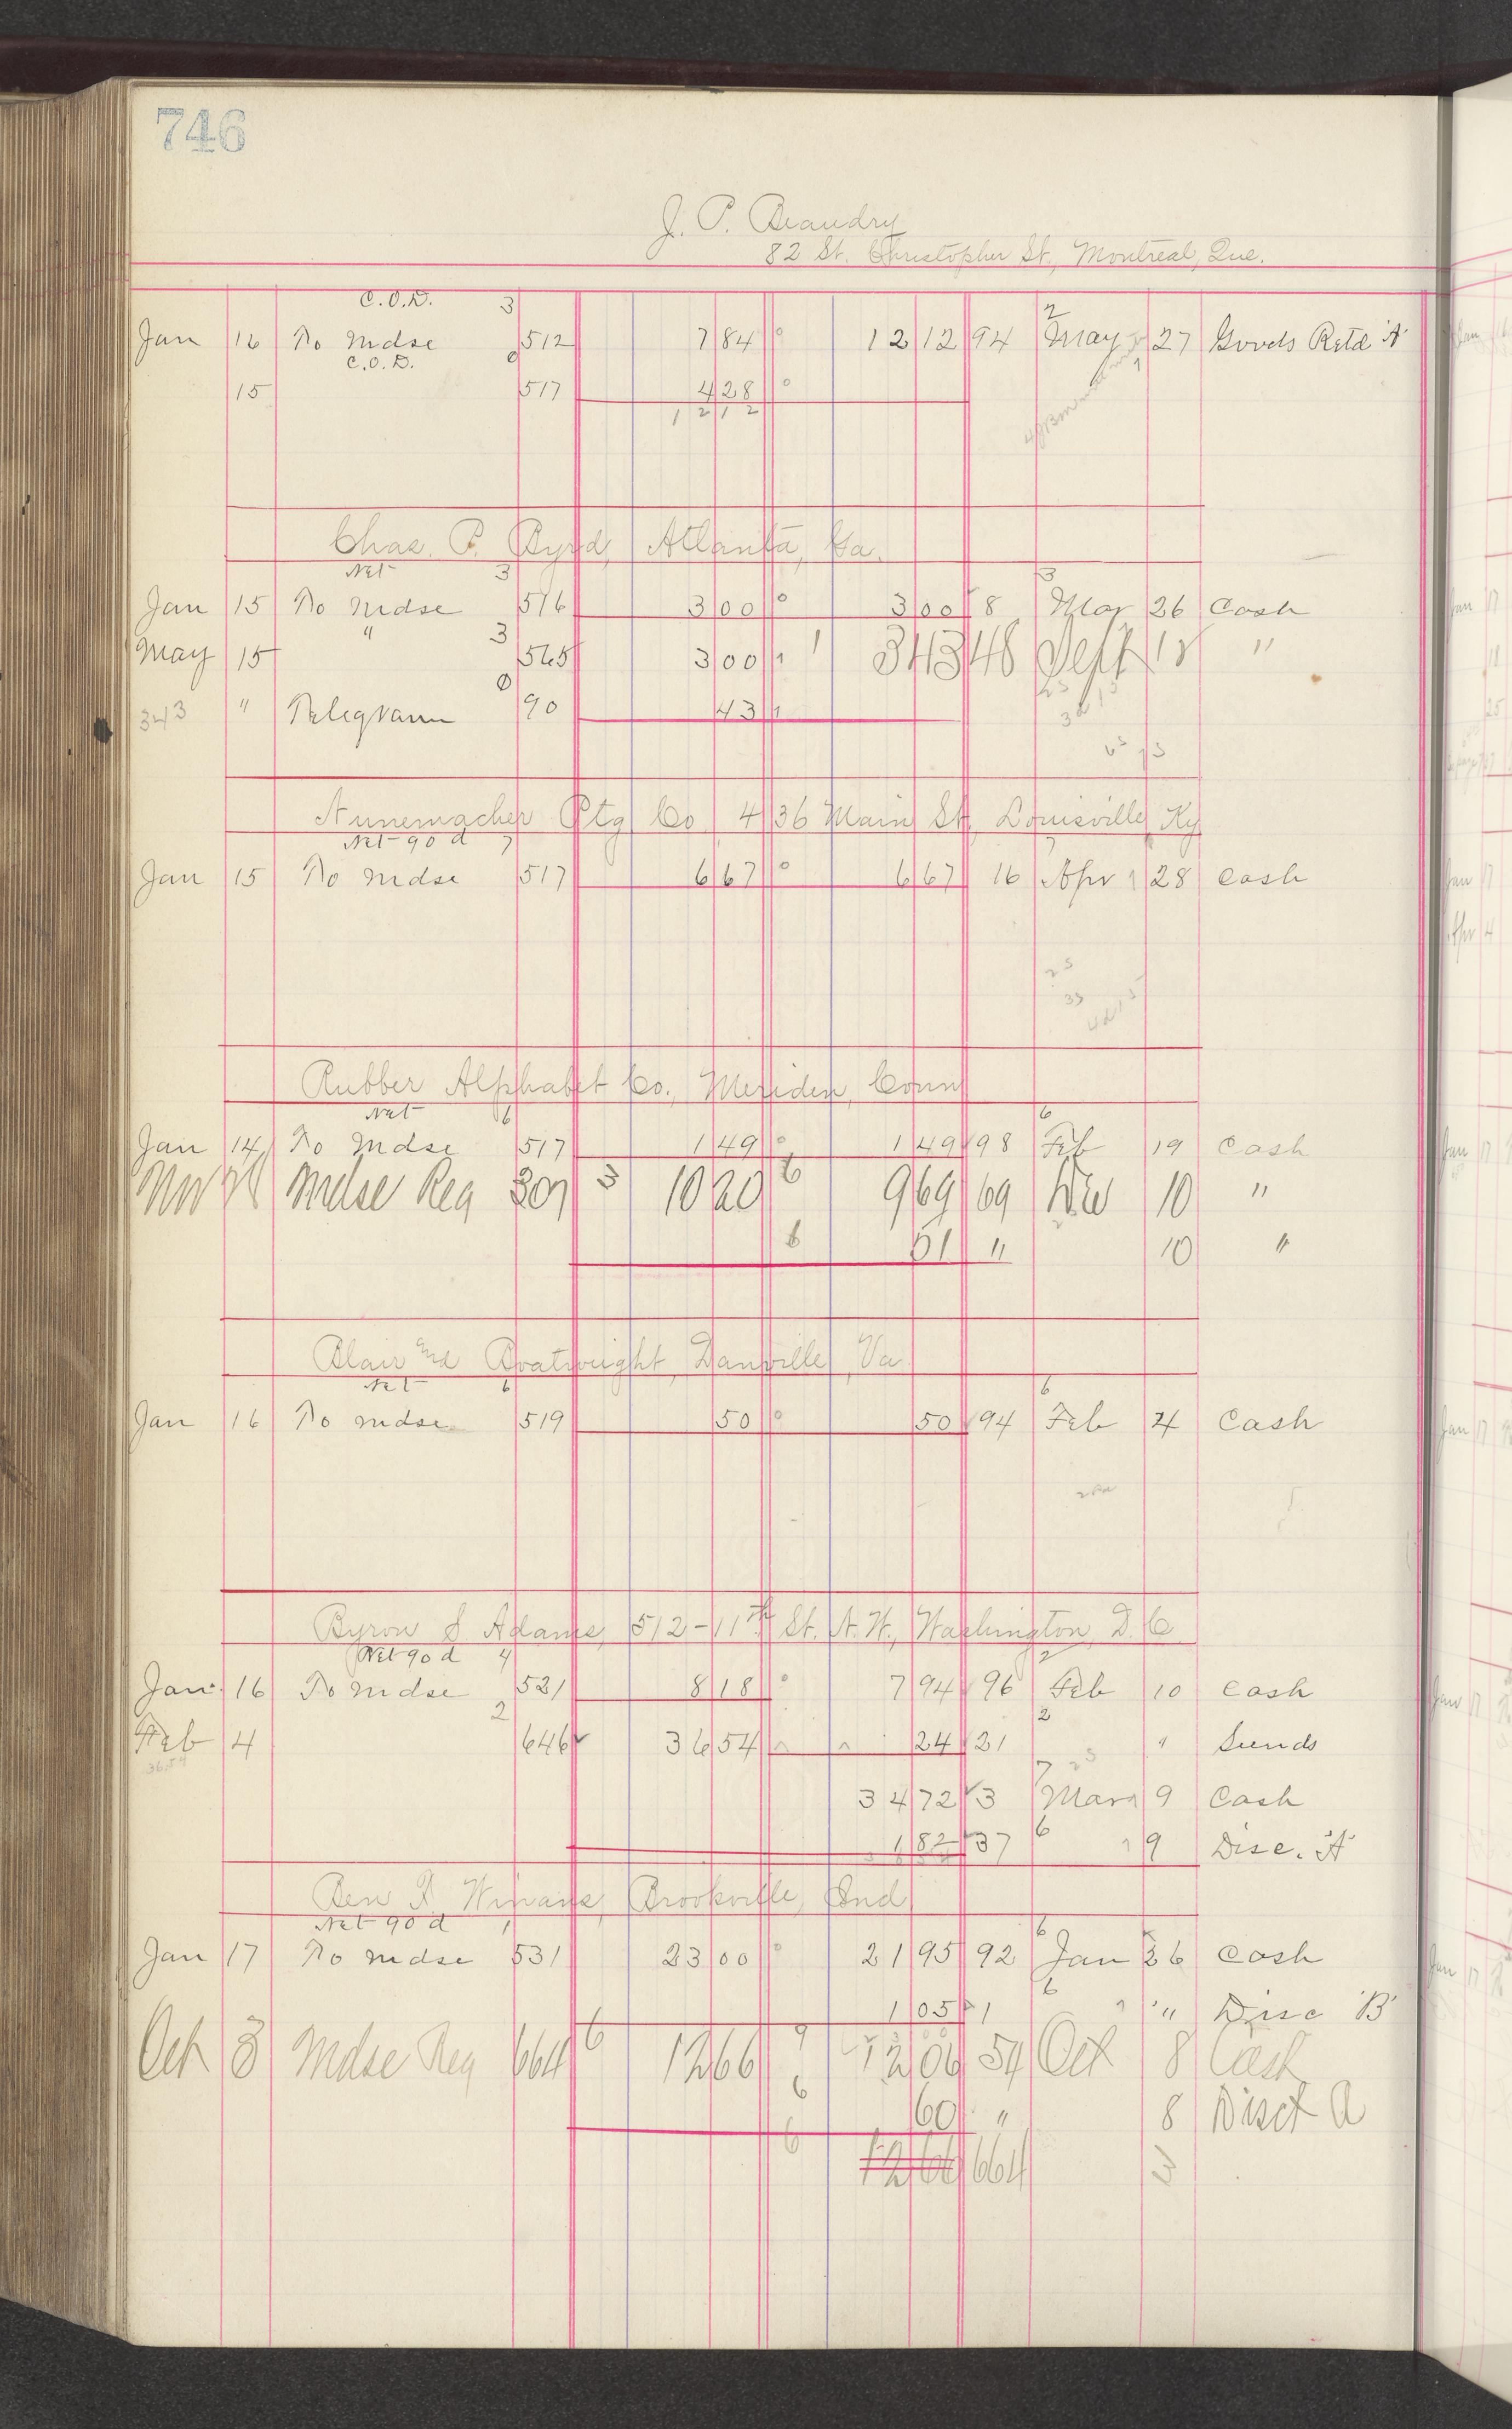 746
J. P. Beaudry
82 St. Christopher St., Montreal, Que.
C.O.D. 3 2
Jan 16 To Mdse 512 7 84 0 12 12 94 May 27 Goods Retd 'A'
C.O.D. 0
15 517 4 28 0
12 12
Chas. P. Byrd, Atlanta, Ga.
Net 3 3
Jan 15 To Mdse 516 3 00 0 3 00 8 Mar 26 Cash
May 15 " 3 565 3 00 1 3 43 48 Sept 18 "
343 " Telegram 0 90 43 1
Nunemacher Ptg Co 436 Main St. Louisville Ky
Net 90 d 7
Jan 15 To Mdse 517 6 67 0 6 67 16 Apr 28 Cash
Rubber Alphabet Co., Meriden, Conn
Net 6 6
Jan 14 To Mdse 517 1 49 0 1 49 98 Feb 19 Cash
Nov Mdse Reg 307 3 10 20 6 9 69 69 Nov 10 "
6 51 " 10 "
Blair and Boatwright, Danville, Va
Net 6 6
Jan 16 To Mdse 519 50 0 50 94 Feb 4 Cash
Byron S Adams, 512-11th St. N.W., Washington, D.C.
Net 90 d 4 2
Jan 16 To Mdse 521 8 18 0 7 94 96 Feb 10 Cash
Feb 4 2 646 36 54 24 21 2 " Sunds
36.54
34 72 3 7 Mar 9 Cash
1 82 37 6 9 Disc. 'A'
Ben F. Winans, Brookville, Ind
Net 90 d 1 6
Jan 17 To Mdse 531 23 00 0 21 95 92 Jan 26 Cash
1 05 1 6 " Disc 'B'
Oct 3 Mdse Reg 664 6 12 66 12 06 54 Oct 8 Cash
6 60 " 8 Disct A
6 12 66 664